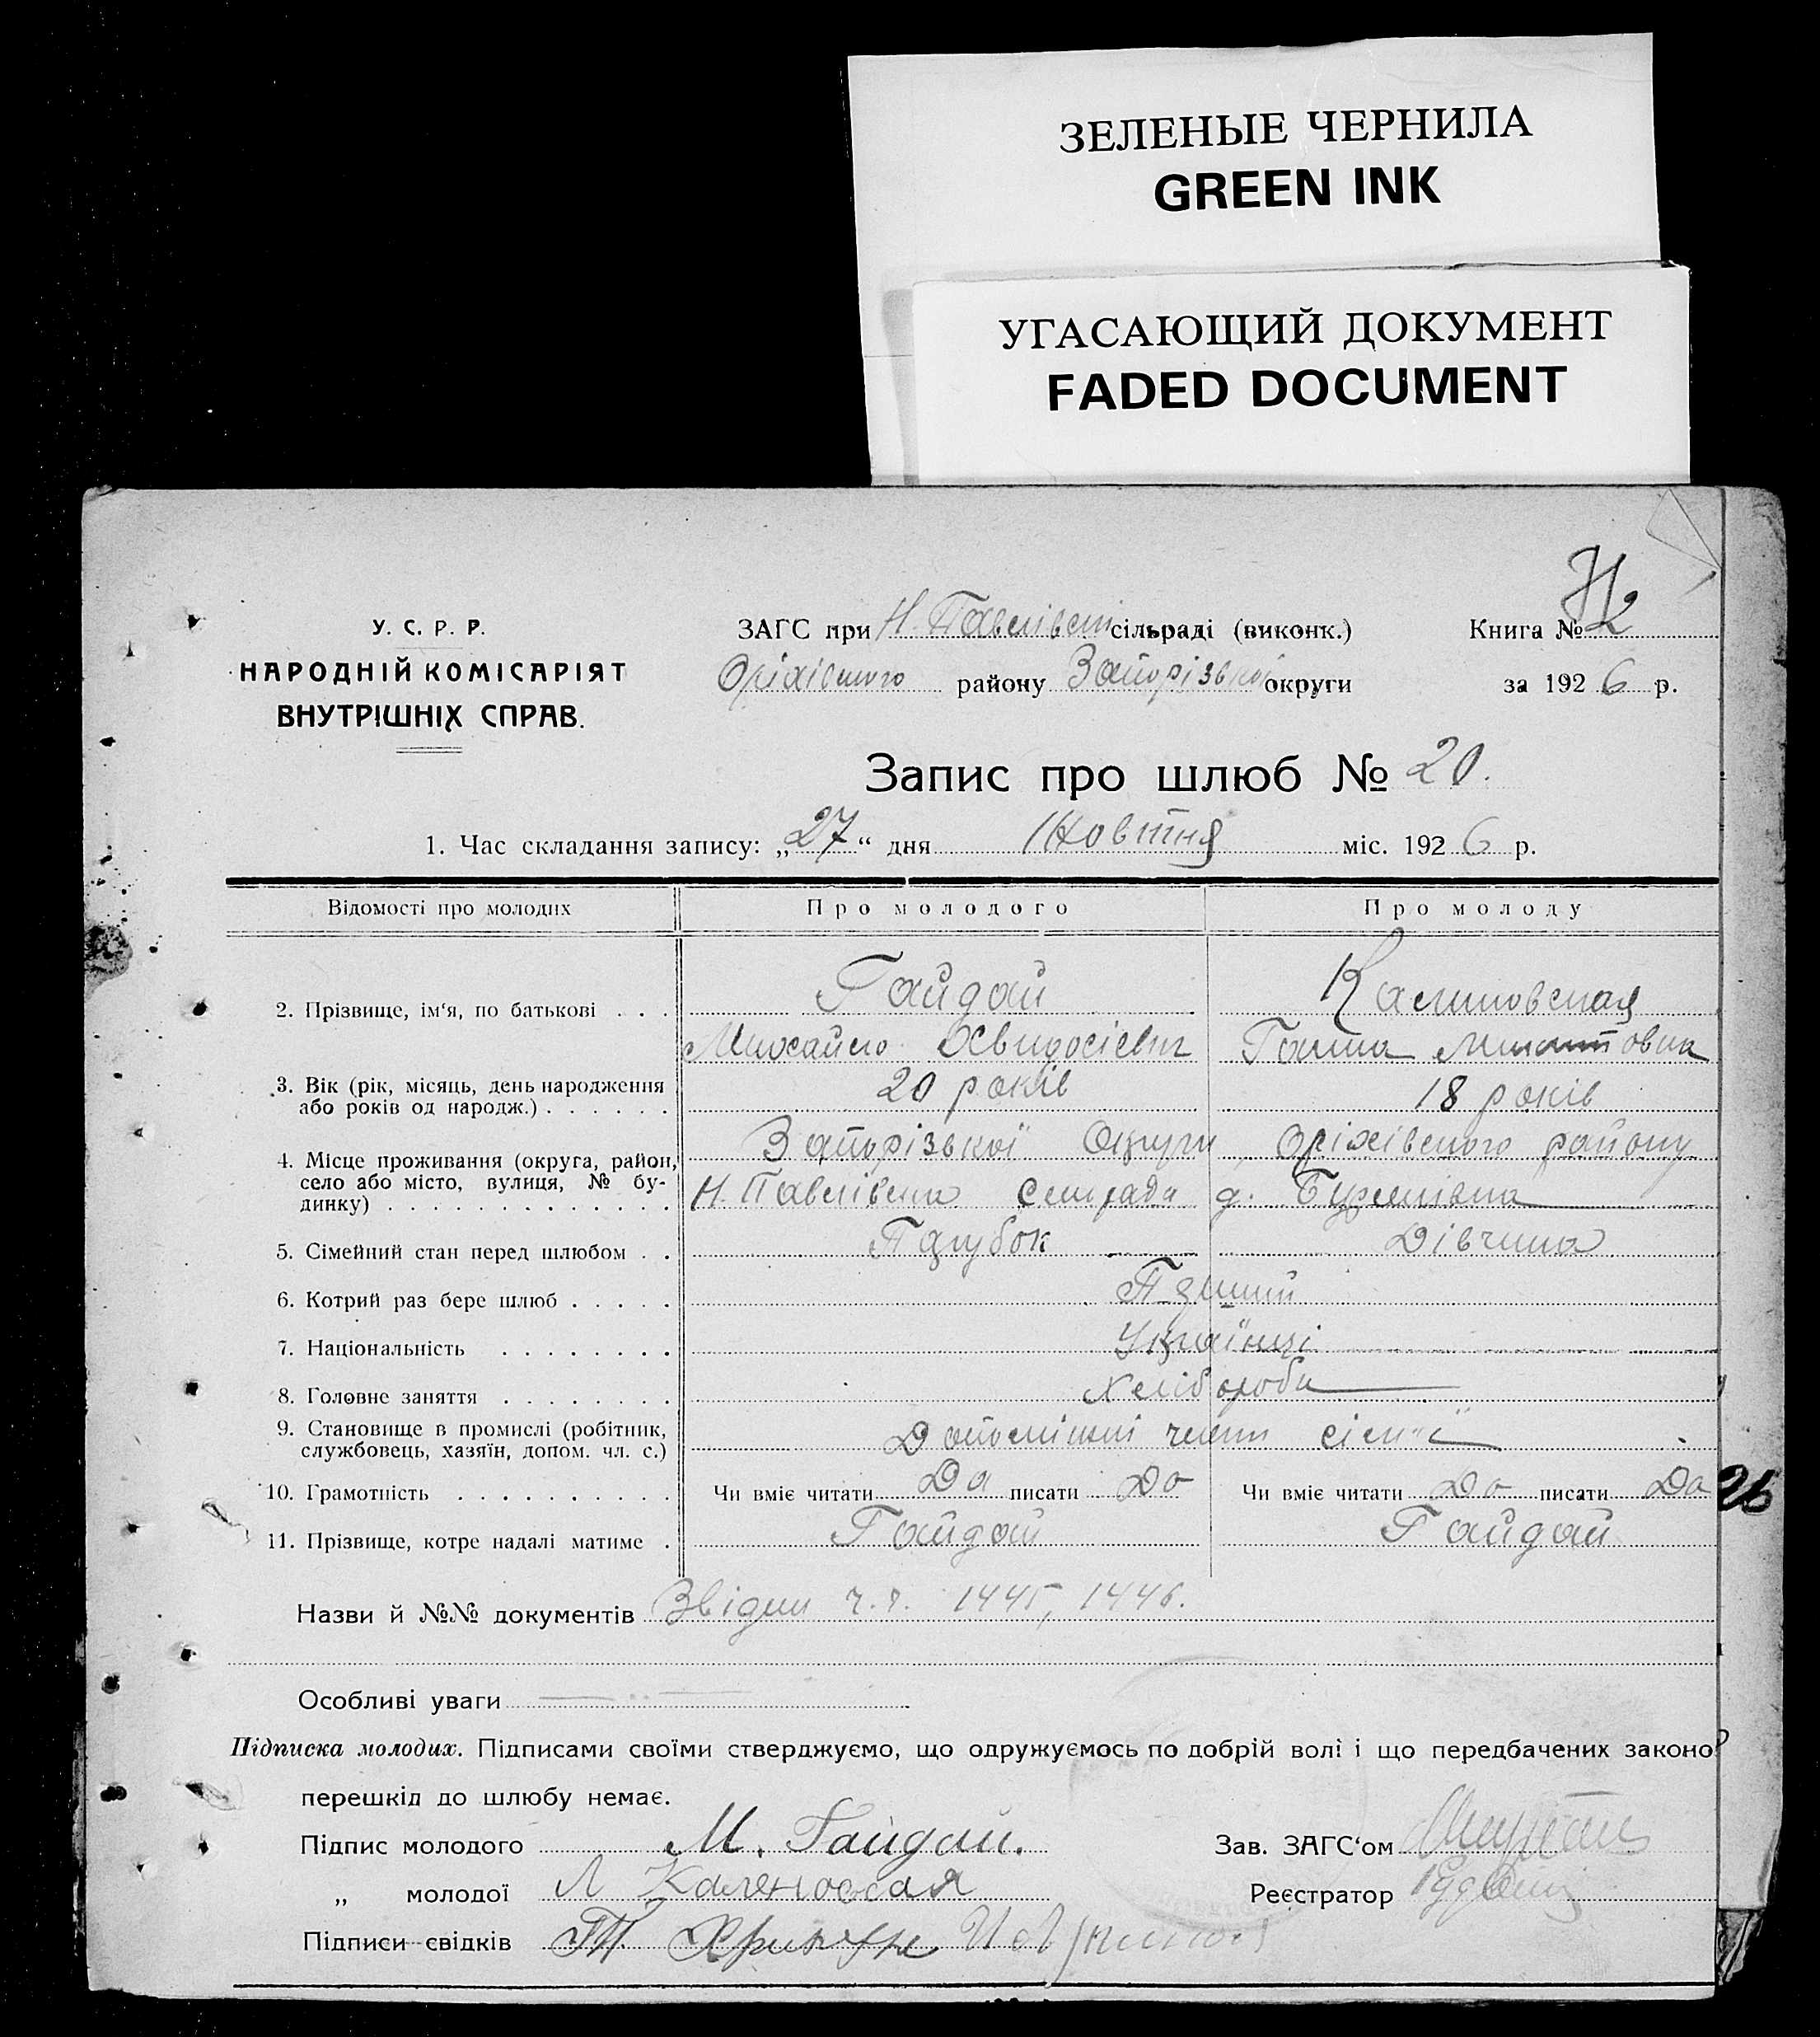 ЗЕЛЕНЫЕ ЧЕРНИЛА
GREEN INK
УГАСАЮЩИЙ ДОКУМЕНТ
FADED DOCUMENT
У. С. Р. Р.
НАРОДНІЙ КОМІСАРІЯТ
ВНУТРІШНІХ СПРАВ.
ЗАГС при Н. Павлівскі сільраді (виконк.)
Оріхівського району Запорізької округи
Книга № 2
за 1926 р.
Запис про шлюб № 20.
1. Час складання запису: „27“ дня Жовтня міс. 1926 р.
Відомості про молодих Про молодого Про молоду
2. Прізвище, ім‘я, по батькові . . . Гайдай Калиновская
Михайло Ганна
3. Вік (рік, місяць, день народження або років од народж.) . . . . . . 20 років 18 років
4. Місце проживання (округа, район, село або місто, вулиця, № будинку) . . . . . . . . . . . . . Запорізької Округи, Оріхівського району
Н. Павлівська Сельрада д.
5. Сімейний стан перед шлюбом . . Парубок Дівчина
6. Котрий раз бере шлюб . . . . . Перший
7. Національність . . . . . . . . Українці
8. Головне заняття . . . . . . . . Хлібороби
9. Становище в промислі (робітник, службовець, хазяїн, допом. чл. с.) Допоміжні члени сім'ї
10. Грамотність . . . . . . . . . . Чи вміє читати Да писати Да Чи вміє читати Да писати Да
26
11. Прізвище, котре надалі матиме . Гайдай Гайдай
Назви й №№ документів Звідки ч.ч. 1445, 1446.
Особливі уваги
Підписка молодих. Підписами своїми стверджуємо, що одружуємось по добрій волі і що передбачених законо
перешкід до шлюбу немає.
Підпис молодого М. Гайдай. Зав. ЗАГС‘ом
„ молодої Реєстратор
Підписи свідків